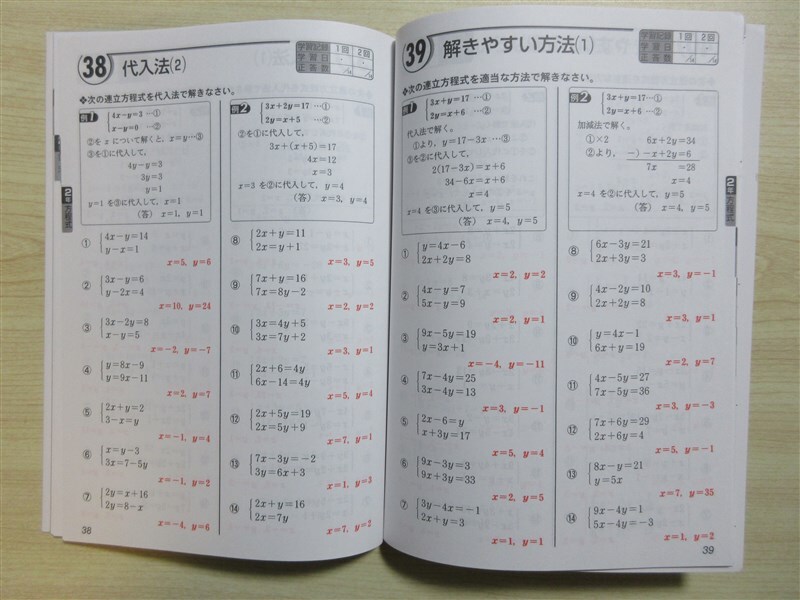 38 代入法(2)
学習記録 1回 2回
学習日
正答数
❖次の連立方程式を代入法で解きなさい。
例1
4x−y=3 …①
x−y=0 …②
②を x について解くと, x=y…③
③を①に代入して,
4y−y=3
3y=3
y=1
y=1 を③に代入して, x=1
(答) x=1, y=1
例2
3x+2y=17 …①
2y=x+5 …②
②を①に代入して,
3x+(x+5)=17
4x=12
x=3
x=3 を②に代入して, y=4
(答) x=3, y=4
① 4x−y=14
y−x=1
x=5, y=6
② 3x−y=6
y−2x=4
x=10, y=24
③ 3x−2y=8
x−y=5
x=−2, y=−7
④ y=8x−9
y=9x−11
x=2, y=7
⑤ 2x+y=2
3−x=y
x=−1, y=4
⑥ x=y−3
3x=7−5y
x=−1, y=2
⑦ 2y=x+16
2y=8−x
x=−4, y=6
⑧ 2x+y=11
2x=y+1
x=3, y=5
⑨ 7x+y=16
7x=8y−2
x=2, y=2
⑩ 3x=4y+5
3x=7y+2
x=3, y=1
⑪ 2x+6=4y
6x−14=4y
x=5, y=4
⑫ 2x+5y=19
2x=5y+9
x=7, y=1
⑬ 7x−3y=−2
3y=6x+3
x=1, y=3
⑭ 2x+y=16
2x=7y
x=7, y=2
2年
方程式
38
39 解きやすい方法(1)
学習記録 1回 2回
学習日
正答数
❖次の連立方程式を適当な方法で解きなさい。
例1
3x+y=17 …①
2y=x+6 …②
代入法で解く。
①より, y=17−3x …③
③を②に代入して,
2(17−3x)=x+6
34−6x=x+6
x=4
x=4 を③に代入して, y=5
(答) x=4, y=5
例2
3x+y=17…①
2y=x+6…②
加減法で解く。
①×2 6x+2y=34
②より, −)−x+2y=6
7x =28
x=4
x=4 を②に代入して, y=5
(答) x=4, y=5
① y=4x−6
2x+2y=8
x=2, y=2
② 4x−y=7
5x−y=9
x=2, y=1
③ 9x−5y=19
y=3x+1
x=−4, y=−11
④ 7x−4y=25
3x−4y=13
x=3, y=−1
⑤ 2x−6=y
x+3y=17
x=5, y=4
⑥ 9x−3y=3
9x+3y=33
x=2, y=5
⑦ 3y−4x=−1
2x+y=3
x=1, y=1
⑧ 6x−3y=21
2x+3y=3
x=3, y=−1
⑨ 4x−2y=10
2x+2y=8
x=3, y=1
⑩ y=4x−1
6x+y=19
x=2, y=7
⑪ 4x−5y=27
7x−5y=36
x=3, y=−3
⑫ 7x+6y=29
2x+6y=4
x=5, y=−1
⑬ 8x−y=21
y=5x
x=7, y=35
⑭ 9x−4y=1
5x−4y=−3
x=1, y=2
2年
方程式
39